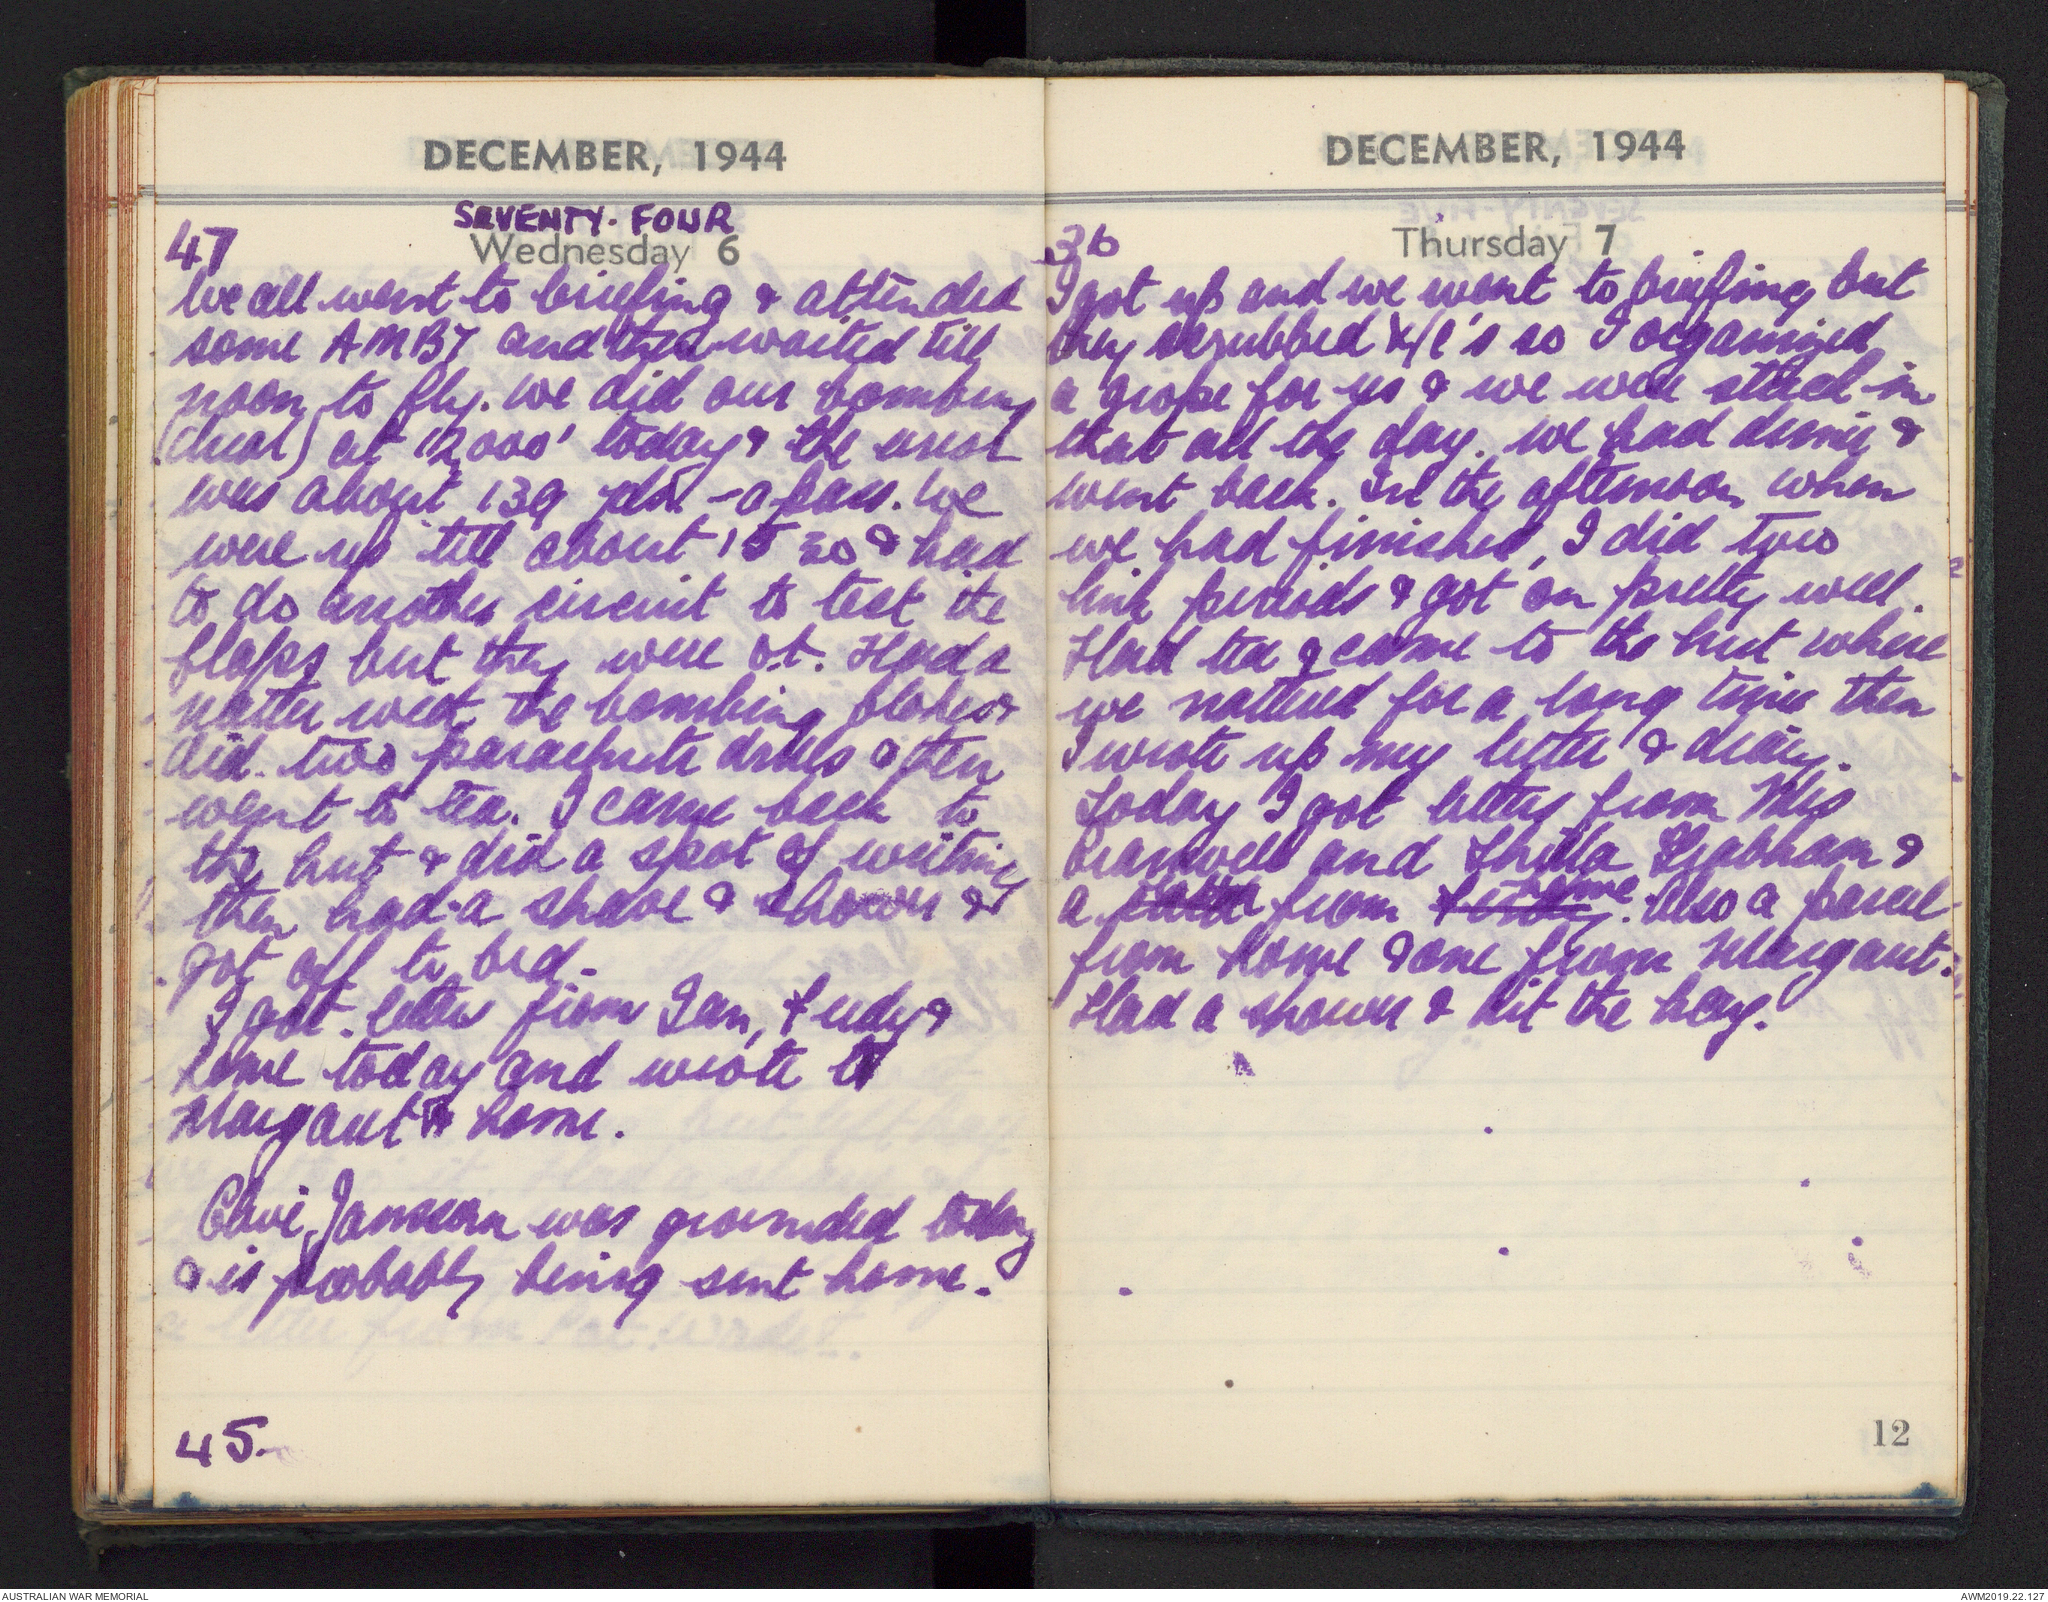 DECEMBER, 1944
SEVENTY-FOUR
47
Wednesday 6
We all went to briefing & attended
some AMBT and then waited till
noon to fly. We did our bombing
(dual) at 12,000' today & the error
was about 139 yds - a pass. We
were up till about 15 30 & had
to do another circuit to test the
flaps but they were ot. Had a
natter with the bombing blokes &
did two parachute drills & then
went to tea. I came back to
the hut & did a spot of writing
then had a shave & shower &
got off to bed.
I got letters from Ian, Judy &
home today and wrote to
Margaret & home.
Clive Janssan was grounded today
& is probably being sent home.
45.
DECEMBER, 1944
36
Thursday 7
I got up and we went to briefing but
they scrubbed X/C's so I organized
a grope for us & we were stuck in
that all the day. We had dinner &
went back. In the afternoon when
we had finished, I did two
link periods & got on pretty well.
Had tea & came to the hut where
we nattered for a long time then
I wrote up my letter & diary.
Today I got letters from Mrs
Bramwell and Thilla Grabham &
a letter from Judy home. Also a parcel
from home & one from Margaret.
Had a shower & hit the hay.
12
AUSTRALIAN WAR MEMORIAL
AWM2019.22.127